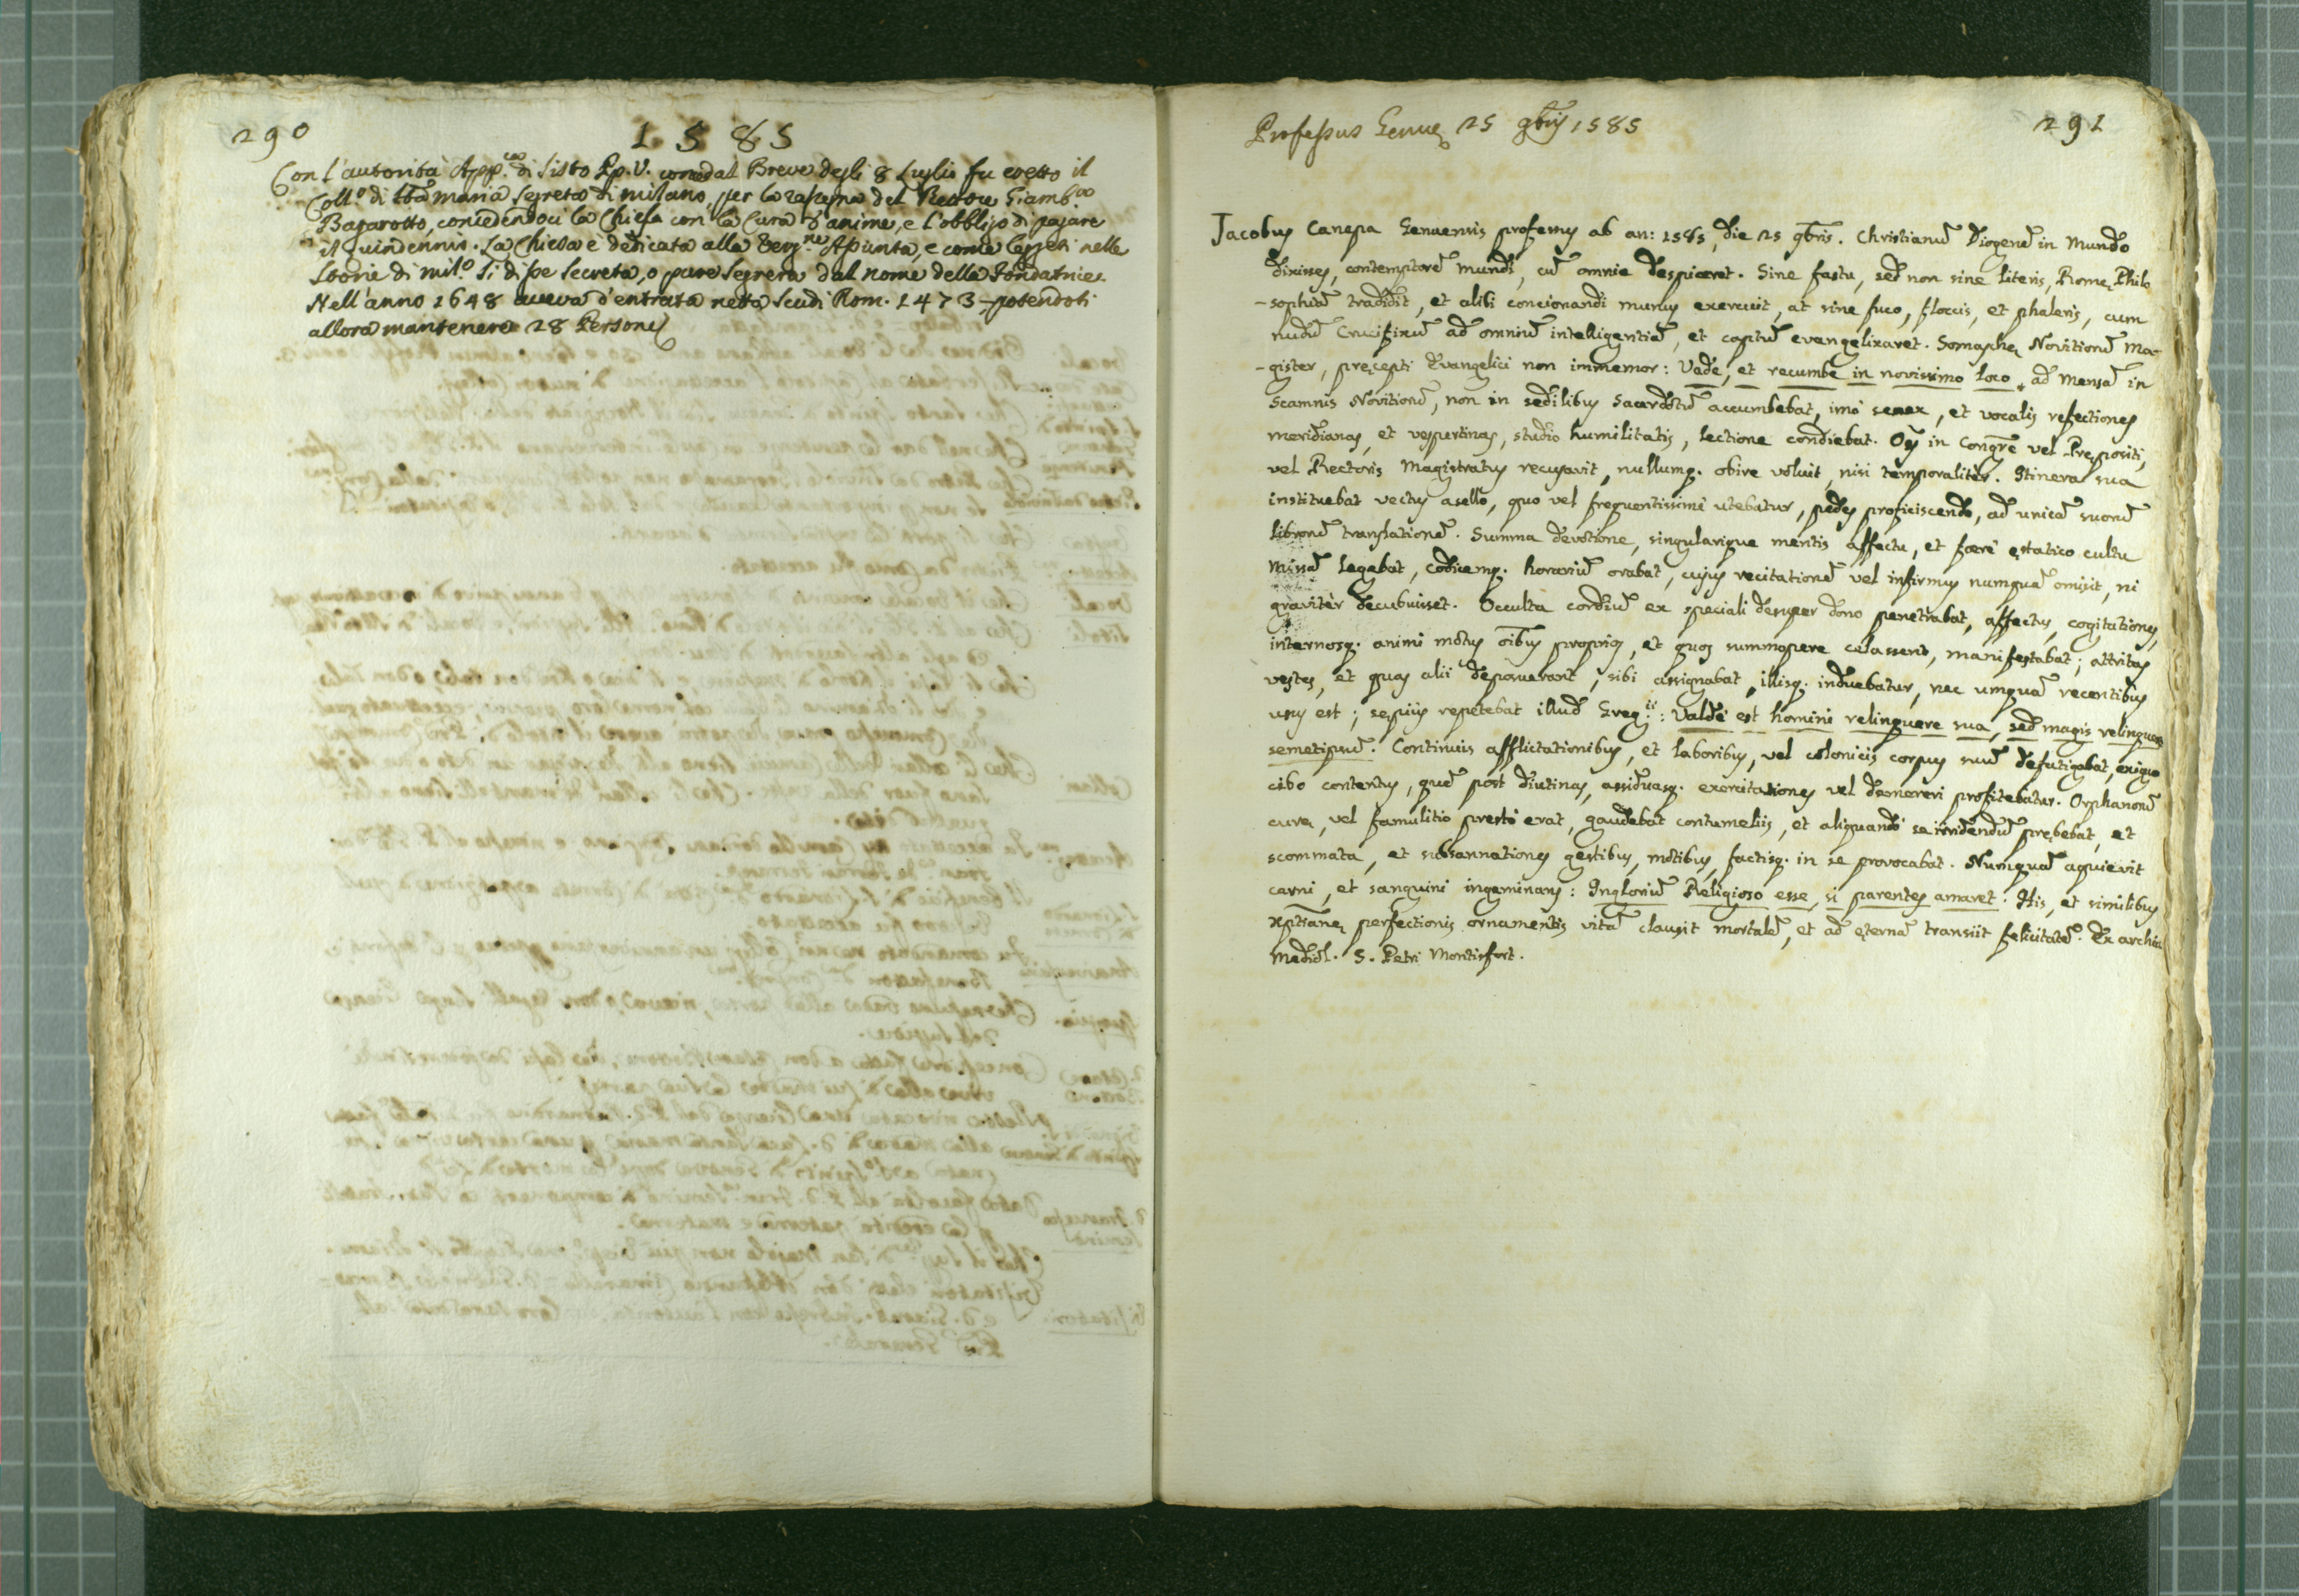 290
1585
Con l'autorità App.ca di Sisto Pp. V. come dal Breve degli 8 Luglio fu eretto il
Coll.o di Sta Maria Segreta di Milano, per la rasegna del Rettore Giamb.a
Bagarotto, concedendoci la Chiesa con la Cura d'anime, e l'obbligo di pagare
il quindennio. La Chiesa è dedicata alla Verg.ne Assunta, e come leggesi nelle
Storie di Mil.o Si disse Secreta, o pure Segreta dal nome della Fondatrice.
Nell'anno 1648 aveva d'entrata netta Scudi Rom. 1473 potendosi
allora mantenere 28 Persone
291
Professus Genuę 25 9bris 1585
Jacobus Canepa Genuensis professus ab an: 1585, die 25 9bris. Christianũ Diogenẽ in Mundo
dixisses, contemptorẽ mundi, cũ omnia despiceret. Sine fastu, sed non sine literis, Romę Philo
-sophiã tradidit, et alibi concionandi munus exercuit, at sine fuco, floccis, et phaleris, cum
nudũ Crucifixũ ad omniũ intelligentiã, et captũ evangelizaret. Somaschę Novitiorũ Ma-
-gister, pręcepti Evangelici non immemor: Vade, et recumbe in novissimo loco, ad Mensã in
Scamnis Novitiorũ, non in sedilibus Sacerdotũ accumbebat, imò senex, et vocalis refectiones
meridianas, et vespertinas, studio humilitatis, lectione condiebat. Oẽs in Congrẽ vel Prępositi,
vel Rectoris Magistratus recusavit, nullumq. obire voluit, nisi temporalitèr. Itinera sua
instituebat vectus asello, quo vel frequentissimè utebatur, pedes proficiscendo, ad unicã suorũ
librorũ translationẽ. Summa devotione, singularique mentis affectu, et ferè ęstatico cultu
Missã legabat, codicemq. horariũ orabat, cujus recitationẽ vel infirmus numquã omisit, ni
gravitèr decubuisset. Occulta cordiũ ex speciali desuper dono penetrabat, affectus, cogitationes,
internosq. animi motus oĩbus proprios, et quos summopere celassent, manifestabat; attritas
vestes, et quas alii deposuerant, sibi assignabat, illisq. induebatur, nec umquã recentibus
usus est; sępiùs repetebat illud Greg.ii: Valdè est homini relinquere sua, sed magis relinquere
semetipsũ. Continuis afflictationibus, et laboribus, vel colonicis corpus suũ defatigabat, exiguo
cibo contentus, quẽ post diutinas, assiduasq. exercitationes vel demereri profitebatur. Orphanorũ
curę, vel famulitio prestò erat, gaudebat contumeliis, et aliquandò se irridendũ prębebat, et
scommata, et subsannationes gestibus, motibus, factisq. in se provocabat. Numquã aquievit
carni, et sanguini ingeminans: Inglorium Religioso esse, si parentes amaret. His, et similibus
Xptianę perfectionis ornamentis vitã clausit mortalẽ, et ad ęternã transiit felicitatẽ. Ex archiv.
Mediol. S. Petri Montisfort.